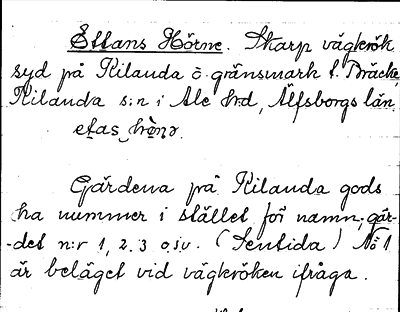 Ettans Hörne. Skarp vägkrök
syd på Kilanda ö gränsmark t. Bräcke,
Kilanda s:n i Ale h:d, Älfsborgs län.
etas hö̀nə.
Gärdena på Kilanda gods
ha nummer i stället för namn; gär-
-det n:r 1, 2. 3 o.s.v. (Sentida) No 1
är beläget vid vägkröken ifråga.